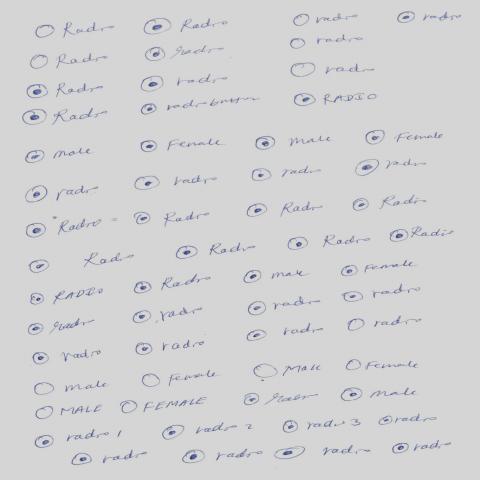 Radio Radio radio radio
Radio Radio radio
Radio radio radio
Radio radiobutton RADIO
male Female male Female
radio radio radio radio
Radio Radio Radio Radio
Radio Radio Radio Radio
RADIO Radio male Female
Radio radio radio radio
radio radio radio radio
male Female MALE Female
MALE FEMALE Radio male
radio 1 radio 2 radio 3 radio
radio radio radio radio